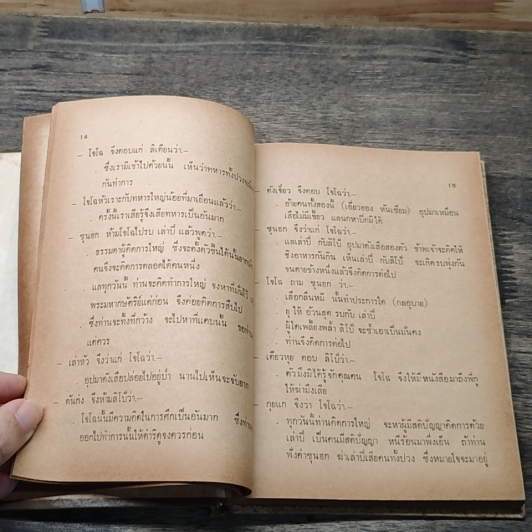 14
– โจโฉ จึงตอบแก่ ลิเตียนว่า.–
ซึ่งเรามิเข้าไปด้วยนั้น เห็นว่าทหารทั้งปวง
กันทำการ
– โจโฉหัวเราะกับทหารใหญ่น้อยที่มาเยือนแล้วว่า.–
ครั้งนี้เราเสียรู้จึงเสียทหารเป็นอันมาก
– ซุนฮก ห้ามโจโฉไปรบ เล่าปี่ แล้วพูดว่า.–
ธรรมดาผู้คิดการใหญ่ ซึ่งจะตั้งตัวเป็น
คนจึงจะคิดการตลอดได้คนหนึ่ง
แลทุกวันนี้ ท่านจะคิดทำการใหญ่ จงหาที่
พระมหากษัตริย์แต่ก่อน จึงค่อยคิดการสืบไป
. ซึ่งท่านจะทิ้งที่กว้าง จะไปหาที่แคบนั้น
แต่ควร
– เล่าหัว จึงว่าแก่ โจโฉว่า.–
. อุปมาดังเสือปล่อยไปอยู่ป่า นานไปเห็นจะจับยาก
– ตันก๋ง จึงห้ามลิโป้ว่า.–
. โจโฉนั้นมีความคิดในการศึกเป็นอันมาก ซึ่ง
ออกไปทำการนั้นให้ดำริดูจงควรก่อน
15
– ตังเซี่ยว จึงตอบ โจโฉว่า.–
. อ้ายคนทั้งสองนี้ (เตียวฮอง หันเซียม) อุปมาเหมือน
เสือไม่มีเขี้ยว แลนกหาปีกมิได้
– ซุนฮก จึงว่าแก่ โจโฉว่า.–
. แลเล่าปี่ กับลิโป้ อุปมาดังเสือสองตัว ข้าพเจ้าจะคิดให้
ชิงอาหารกันกิน เห็นเล่าปี่ กับลิโป้ จะเกิดรบพุ่งกัน
จนตายข้างหนึ่งแล้วจึงคิดการต่อไป
– โจโฉ ถาม ซุนฮก ว่า.–
. เสือกลืนหมี นั้นทำประการใด (กลอุบาย)
. ยุ ให้ อ้วนสุด รบกับ เล่าปี่
. ผู้ใดเพลี่ยงพล้ำ ลิโป้ จะซ้ำเอาเป็นมั่นคง
. ท่านจึงคิดการต่อไป
– เตียวหุย ตอบ ลิโป้ว่า.–
. ตัวมึงมิได้รู้จักคุณคน โจโฉ จึงให้มีหนังสือมาถึงพี่กู
ให้ฆ่ามึงเสีย
– กุยแก จึงว่า โจโฉว่า.–
. ทุกวันนี้ท่านคิดการใหญ่ จะหาผู้มีสติปัญญาคิดการด้วย
เล่าปี่ เป็นคนมีสติปัญญา หนีร้อนมาพึ่งเย็น ถ้าท่าน
ฟังคำซุนฮก ฆ่าเล่าปี่เสียคนทั้งปวง ซึ่งหมายใจจะมาอยู่